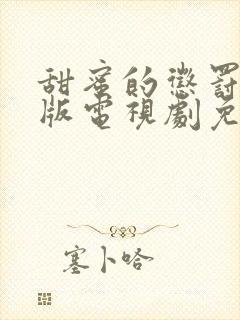 甜蜜的懲罰
版電視劇免
塞卜哈